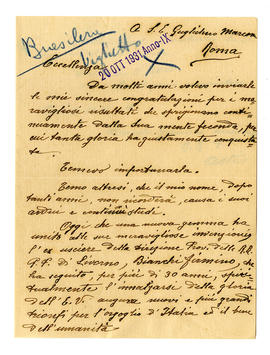 A S.E. Guglielmo Marconi
Roma
20 OTT 1931 Anno IX
Eccellenza
Da molti anni volevo inviarle
le mie sincere congratulazioni per i me
ravigliosi risultati che sprigionano conti
nuamente dalla Sua mente feconda, per
cui tanta gloria ha giustamente conquista
ta.
Temevo importunarla.
Temo altresì, che il mio nome, dopo
tanti anni, non ricorderà, causa i suoi
ardui e continui studi.
Oggi che una nuova gemma ha
unito alle sue meravigliose invenzioni
l'ex usciere della Direzione Prov. delle RR.
P.P. di Livorno, Bianchi Firmino, che
ha seguito, per più di 30 anni, spiri
tualmente l'innalzarsi della gloria
dell'E.V. augura nuovi e più grandi
trionfi per l'orgoglio d'Italia e il bene
dell'umanità